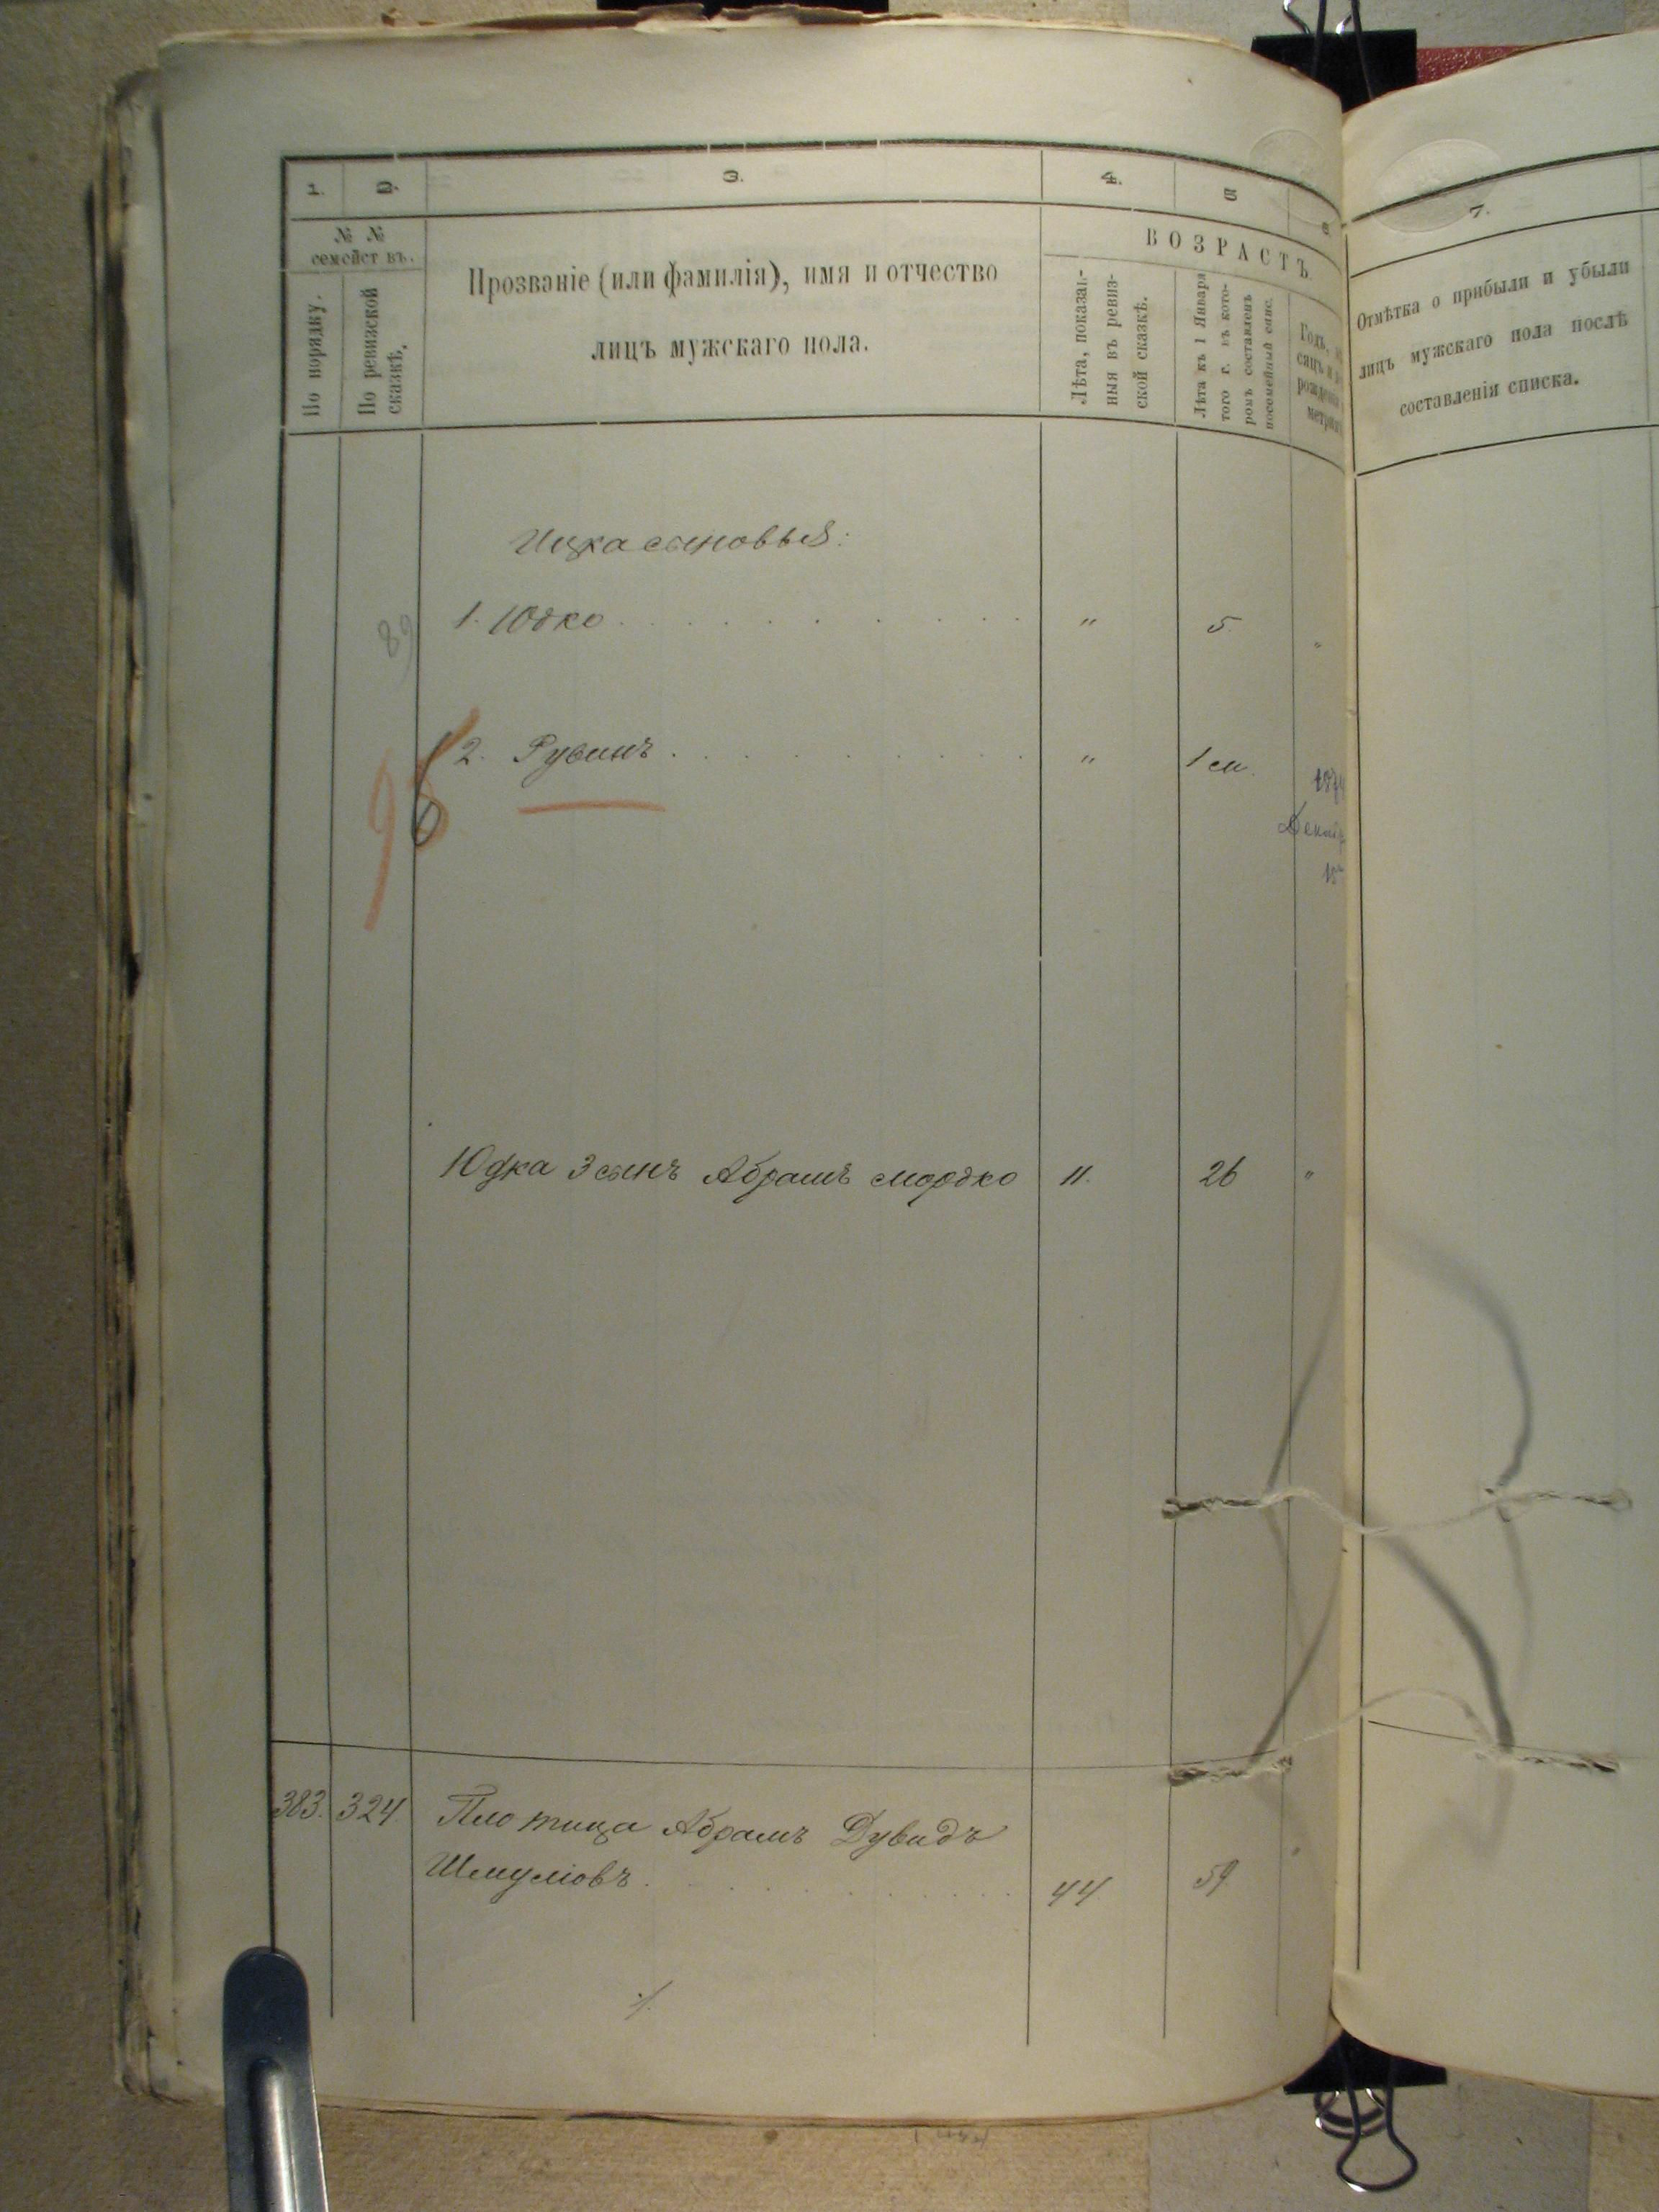 1.
2.
3.
4.
5
6
7.
№ №
семействъ.
По порядку.
По ревизской
сказкѣ.
Прозваніе (или фамилія), имя и отчество
лицъ мужскаго пола.
ВОЗРАСТЪ.
Лѣта, показан-
ныя въ ревиз-
ской сказкѣ.
Лѣта къ 1 Января
того г. въ кото-
ромъ составленъ
посемейный спис.
Годъ,
рожденія
Отмѣтка о прибыли и убыли
лицъ мужскаго пола послѣ
составленія списка.
Ицка сыновья:
89
1. Юдко . . . . . . . . . . . " 5. "
98
2. Рувинъ . . . . . . . . . . " 1 м.
Юдка 3 сынъ Абрамъ Мордко 11. 26 "
383. 324. Плотица Абрамъ Дувидъ
Шмуліовъ . . . . . . . . . . 44 59